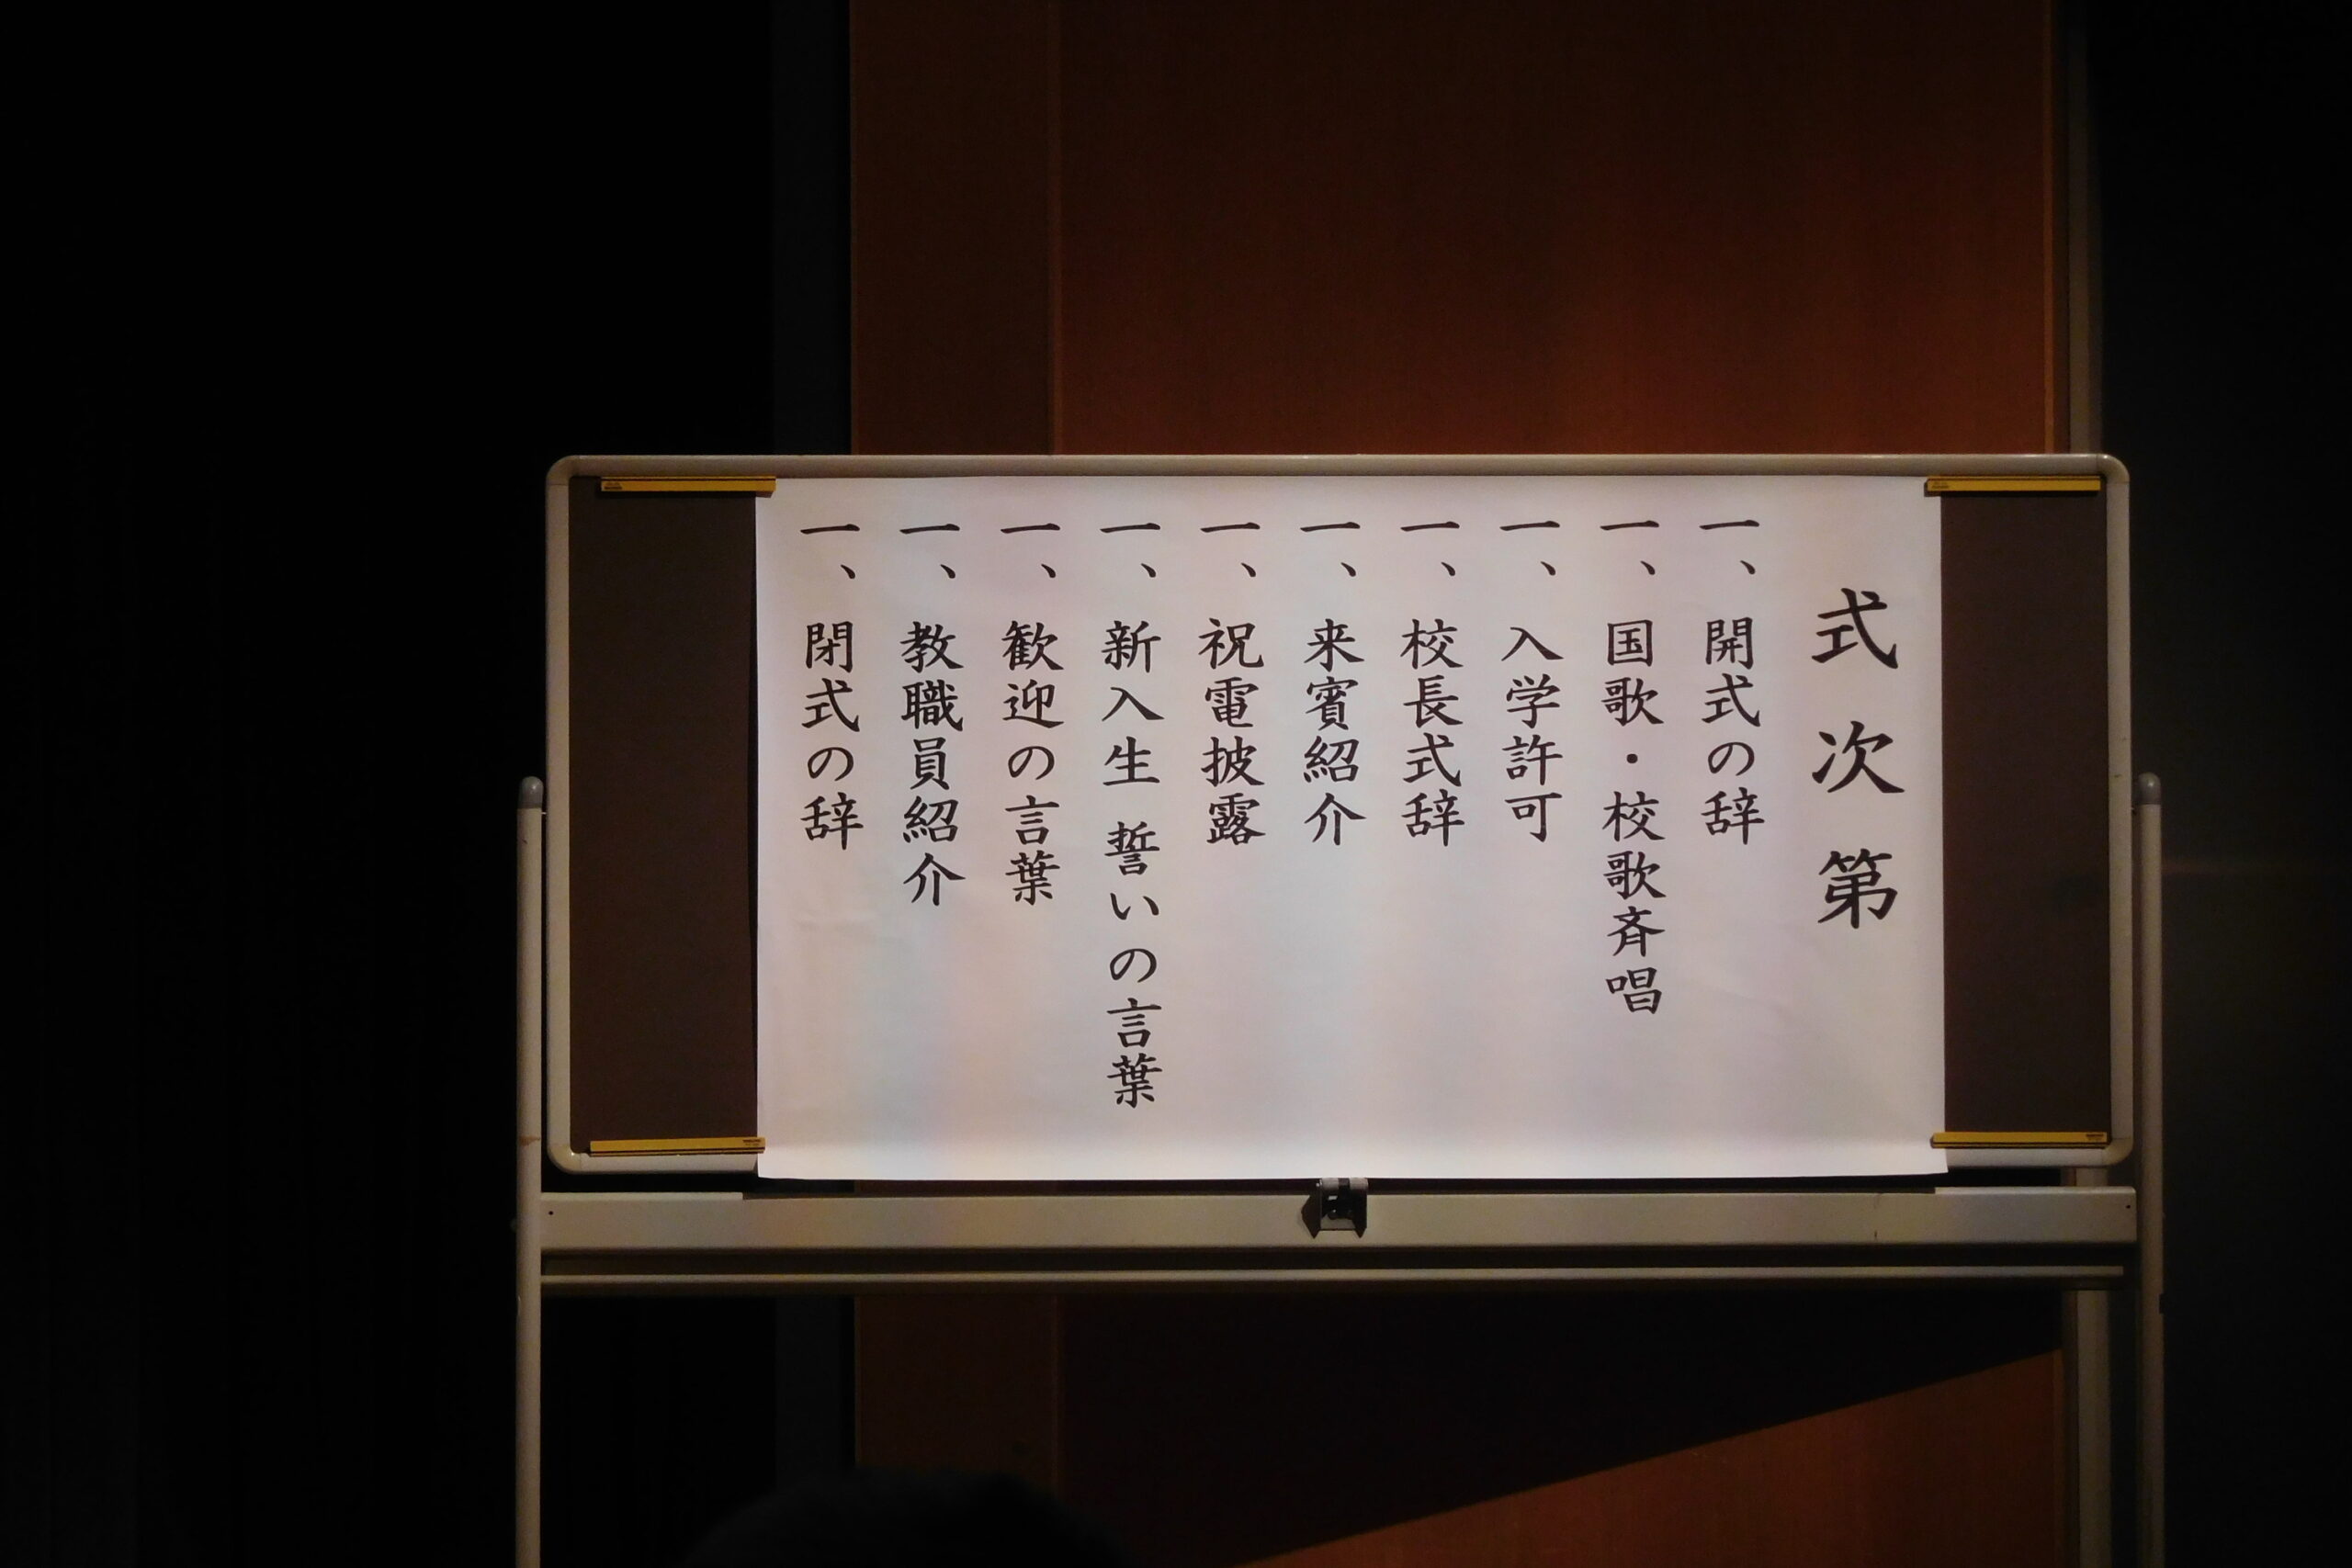 式次第
一、開式の辞
一、国歌・校歌斉唱
一、入学許可
一、校長式辞
一、来賓紹介
一、祝電披露
一、新入生 誓いの言葉
一、歓迎の言葉
一、教職員紹介
一、閉式の辞